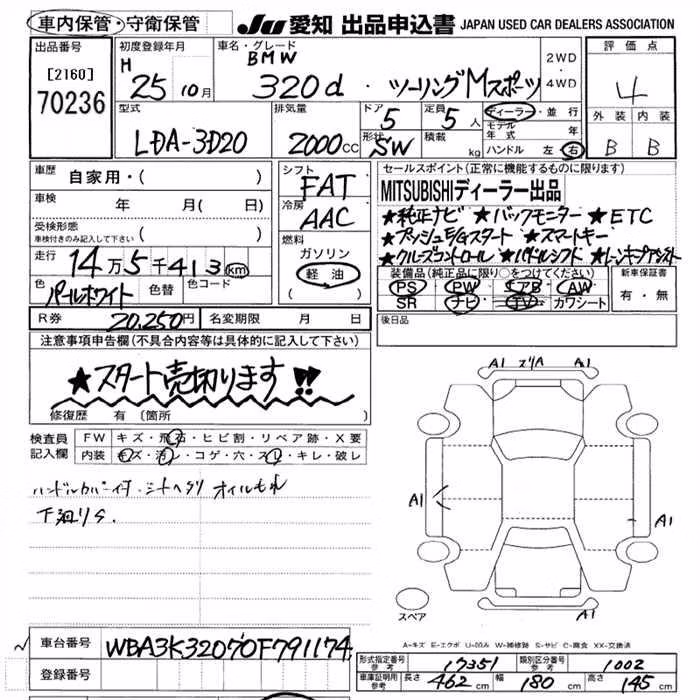 車内保管・守衛保管
JU 愛知 出品申込書 JAPAN USED CAR DEALERS ASSOCIATION
出品番号 [2160] 70236
初度登録年月 H 25 10月
車名・グレード BMW 320d ・ ツーリングMスポーツ
2WD ・ 4WD
評価点 4
外装 内装
B B
型式 LDA-3D20
排気量 2000cc
ドア 5
形状 SW
定員 5人
積載 kg
ディーラー・並行
モデル年式 年
ハンドル 左 右
車歴 自家用・( )
車検 年 月( 日)
受検形態 車検付きのみ記入して下さい ( )
走行 14万5千413km
色 パールホワイト 色替 色コード
シフト FAT
冷房 AAC
燃料 ガソリン
軽油
( )
セールスポイント(正常に機能するものに限ります)
MITSUBISHIディーラー出品
★純正ナビ ★バックモニター ★ETC
★プッシュE/Gスタート ★スマートキー
★クルーズコントロール ★パドルシフト ★レーンキープアシスト
装備品(純正品に限り○をつけてください) 新車保証書
PS PW エアB AW 有・無
SR ナビ TV カワシート
後日品
R券 20,250円 名変期限 月 日
注意事項申告欄(不具合内容等は具体的に記入して下さい)
★スタート売切ります!!
修復歴 有 〔箇所 〕
検査員記入欄 FW キズ・飛石・ヒビ割・リペア跡・X要
内装 キズ・汚レ・コゲ・穴・スレ・キレ・破レ
ハンドルカバー付・シートヘタリ オイルもれ
下廻りS.
A1 ズリA A1
A1
A1
A1
スペア
A=キズ E=エクボ U=凹み W=補修跡 S=サビ C=腐食 XX=交換済
車台番号 WBA3K32070F791174
登録番号
形式指定番号 参考 17351 類別区分番号 参考 1002
車庫証明用 参考 長さ 462cm 幅 180cm 高さ 145cm